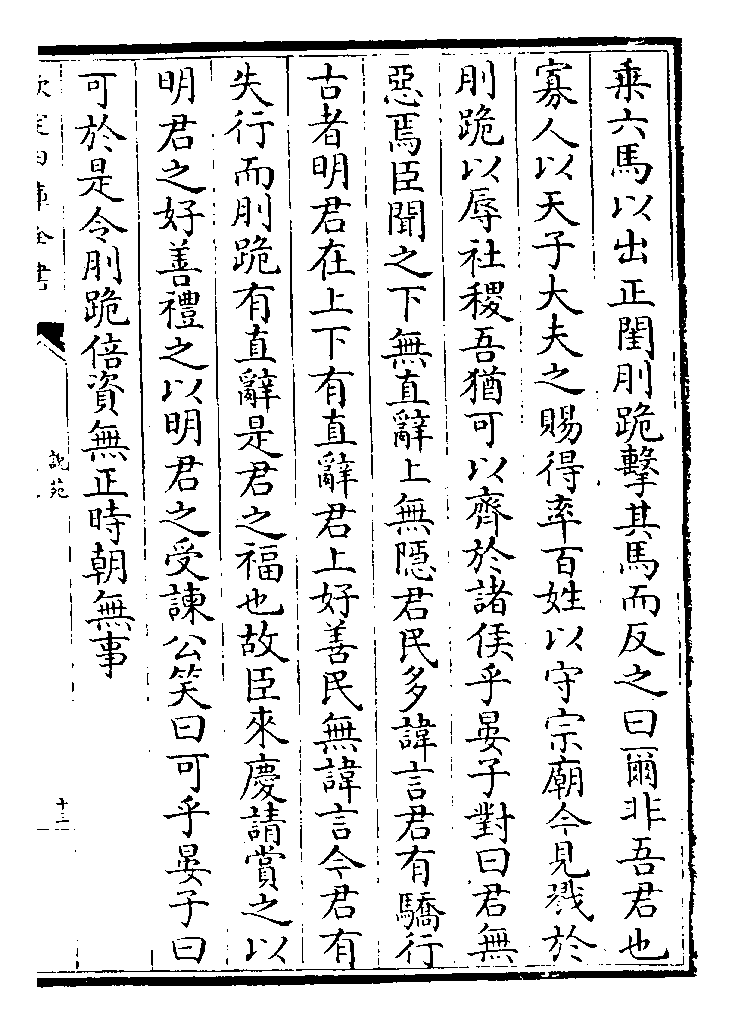 乗六馬以出正閨刖跪擊其馬而反之曰爾非吾君也
寡人以天子大夫之賜得率百姓以守宗廟今見戮於
刖跪以辱社稷吾猶可以齊於諸侯乎晏子對曰君無
惡焉臣聞之下無直辭上無隱君民多諱言君有驕行
古者明君在上下有直辭君上好善民無諱言今君有
失行而刖跪有直辭是君之福也故臣來慶請賞之以
明君之好善禮之以明君之受諫公笑曰可乎晏子曰
可於是令刖跪倍資無正時朝無事
欽定四庫全書
說苑